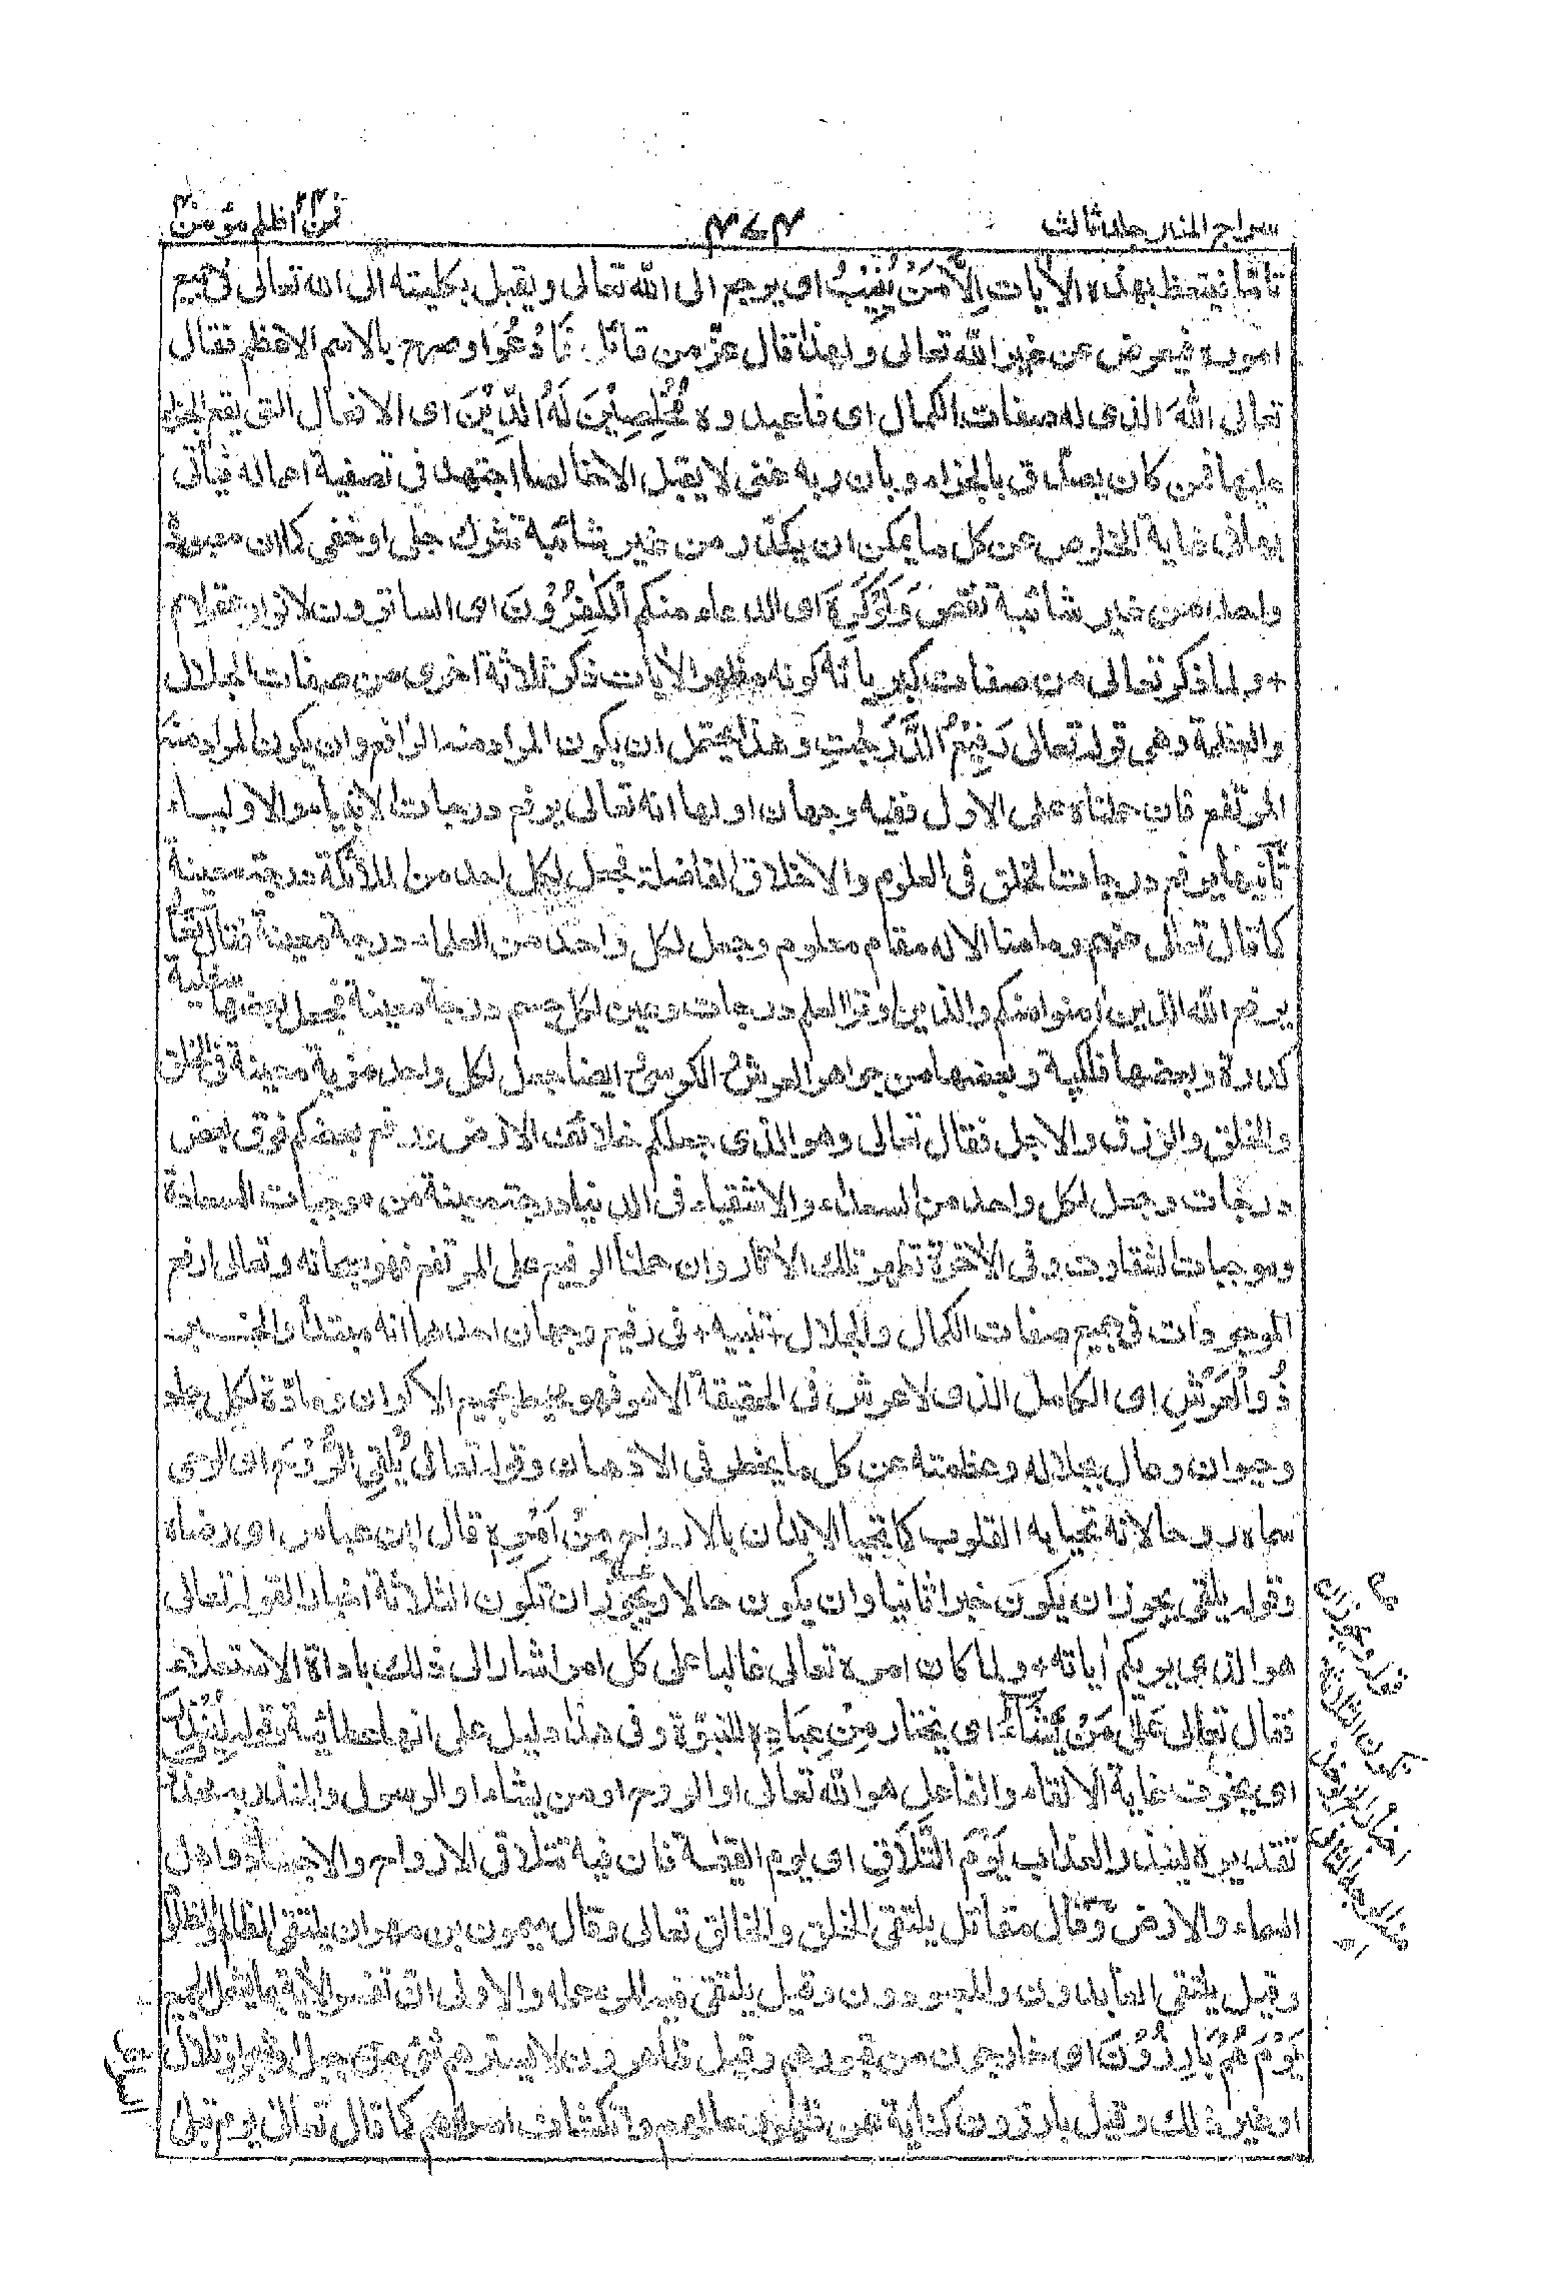 سراج المنير جلد ثالث
٤٧٤
فمن اظلم مؤمن
تاما فيتعظ بهذه الآيات اِلَّا مَنْ يُّنِيْبُ اى يرجع الى الله تعالى ويقبل بكليته الى الله تعالى فى جميع
اموره فيعرض عن غير الله تعالى ولهذا قال عز من قائل فَادْعُوا وصرح بالاسم الاعظم فقال
تعالى اللهَ الذى له صفات الكمال اى فاعبدوه مُخْلِصِيْنَ لَهُ الدِّيْنَ اى الافعال التى يقع الجزاء
عليها فمن كان يصدق بالجزاء وبان ربه غنى لا يقبل الا خالصا اجتهد فى تصفية اعماله فيأتى
بها فى غاية الخلوص عن كل ما يمكن ان يكدر من غير شائبة شرك جلى او خفى كما ان معبوده
واحد من غير شائبة نقص وَلَوْ كَرِهَ اى الدعاء منكم الْكٰفِرُوْنَ اى الساترون لانوار عقولهم
+ ولما ذكر تعالى من صفات كبريائه كونه مظهرا للآيات ذكر ثلاثة اخرى من صفات الجلال
والعظمة وهى قوله تعالى رَفِيْعُ الدَّرَجٰتِ وهذا يحتمل ان يكون المراد منه الرافع وان يكون المراد منه
المرتفع فان حملناه على الاول ففيه وجهان اولها انه تعالى يرفع درجات الانبياء والاولياء
ثانيها يرفع درجات الخلق فى العلوم والاخلاق الفاضلة فجعل لكل احد من الملائكة درجة معينة
كما قال تعالى عنهم وما منا الا له مقام معلوم وجعل لكل واحد من العلماء درجة معينة فقال تعالى
يرفع الله الذين اٰمنوا منكم والذين اوتوا العلم درجات وعين لكل جسم درجة معينة فجعل بعضها سفلية
كدرة وبعضها فلكية وبعضها من جواهر العرش والكرسى وايضا جعل لكل واحد مزية معينة فى الخلق
والخلق والرزق والاجل فقال تعالى وهو الذى جعلكم خلائف الارض ورفع بعضكم فوق بعض
درجات وجعل لكل واحد من السعداء والاشقياء فى الدنيا درجة معينة من موجبات السعادة
وموجبات الشقاوة وفى الآخرة تظهر تلك الآثار وان حملنا الرفيع على المرتفع فهو سبحانه وتعالى ارفع
الموجودات فى جميع صفات الكمال والجلال + تنبيه + فى رفيع وجهان احدهما انه مبتدأ والخبـــر
ذُو الْعَرْشِ اى الكامل الذى لا عرش فى الحقيقة الا هو فهو محيط بجميع الاكوان ومادة لكل جماد
وحيوان وعال بجلاله وعظمته عن كل ما يخطر فى الاذهان وقوله تعالى يُلْقِى الرُّوْحَ اى الوحى
سماه روحا لانه تحيا به القلوب كما تحيا الابدان بالارواح مِنْ اَمْرِهٖ قال ابن عباس اى رضاه
وقوله يلقى يجوز ان يكون خبرا ثانيا وان يكون حالا ويجوز ان تكون الثلاثة اخبارا لقوله تعالى
هو الذى يريكم اٰياته + ولما كان امره تعالى غالبا على كل امر اشار الى ذلك باداة الاستعلاء
فقال تعالى عَلٰى مَنْ يَّشَآءُ اى يختار مِنْ عِبَادِهٖ للنبوة وفى هذا دليل على انها عطائية وقوله لِيُنْذِرَ
اى يخوف غاية الالقاء والفاعل هو الله تعالى او الروح او من يشاء او الرسول والمنذر به محذوف
تقديره لينذر العذاب يَوْمَ التَّلَاقِ اى يوم القيمة فان فيه تتلاقى الارواح والاجساد واهل
السماء والارض وقال مقاتل يلتقى الخلق والخالق تعالى وقال ميمون بن مهران يلتقى الظالم والمظلوم
وقيل يلتقى العابدون والمعبودون وقيل يلتقى فيه المرء عمله والاولى ان تفسر الآية بما يشمل الجميع
يَوْمَ هُمْ بَارِزُوْنَ اى خارجون من قبورهم وقيل ظاهرون لا يسترهم شىء من جبل او تلال
او غير ذلك وقيل بارزون كناية عن ظهور حالهم وانكشاف اسرارهم كما قال تعالى يوم تبلى